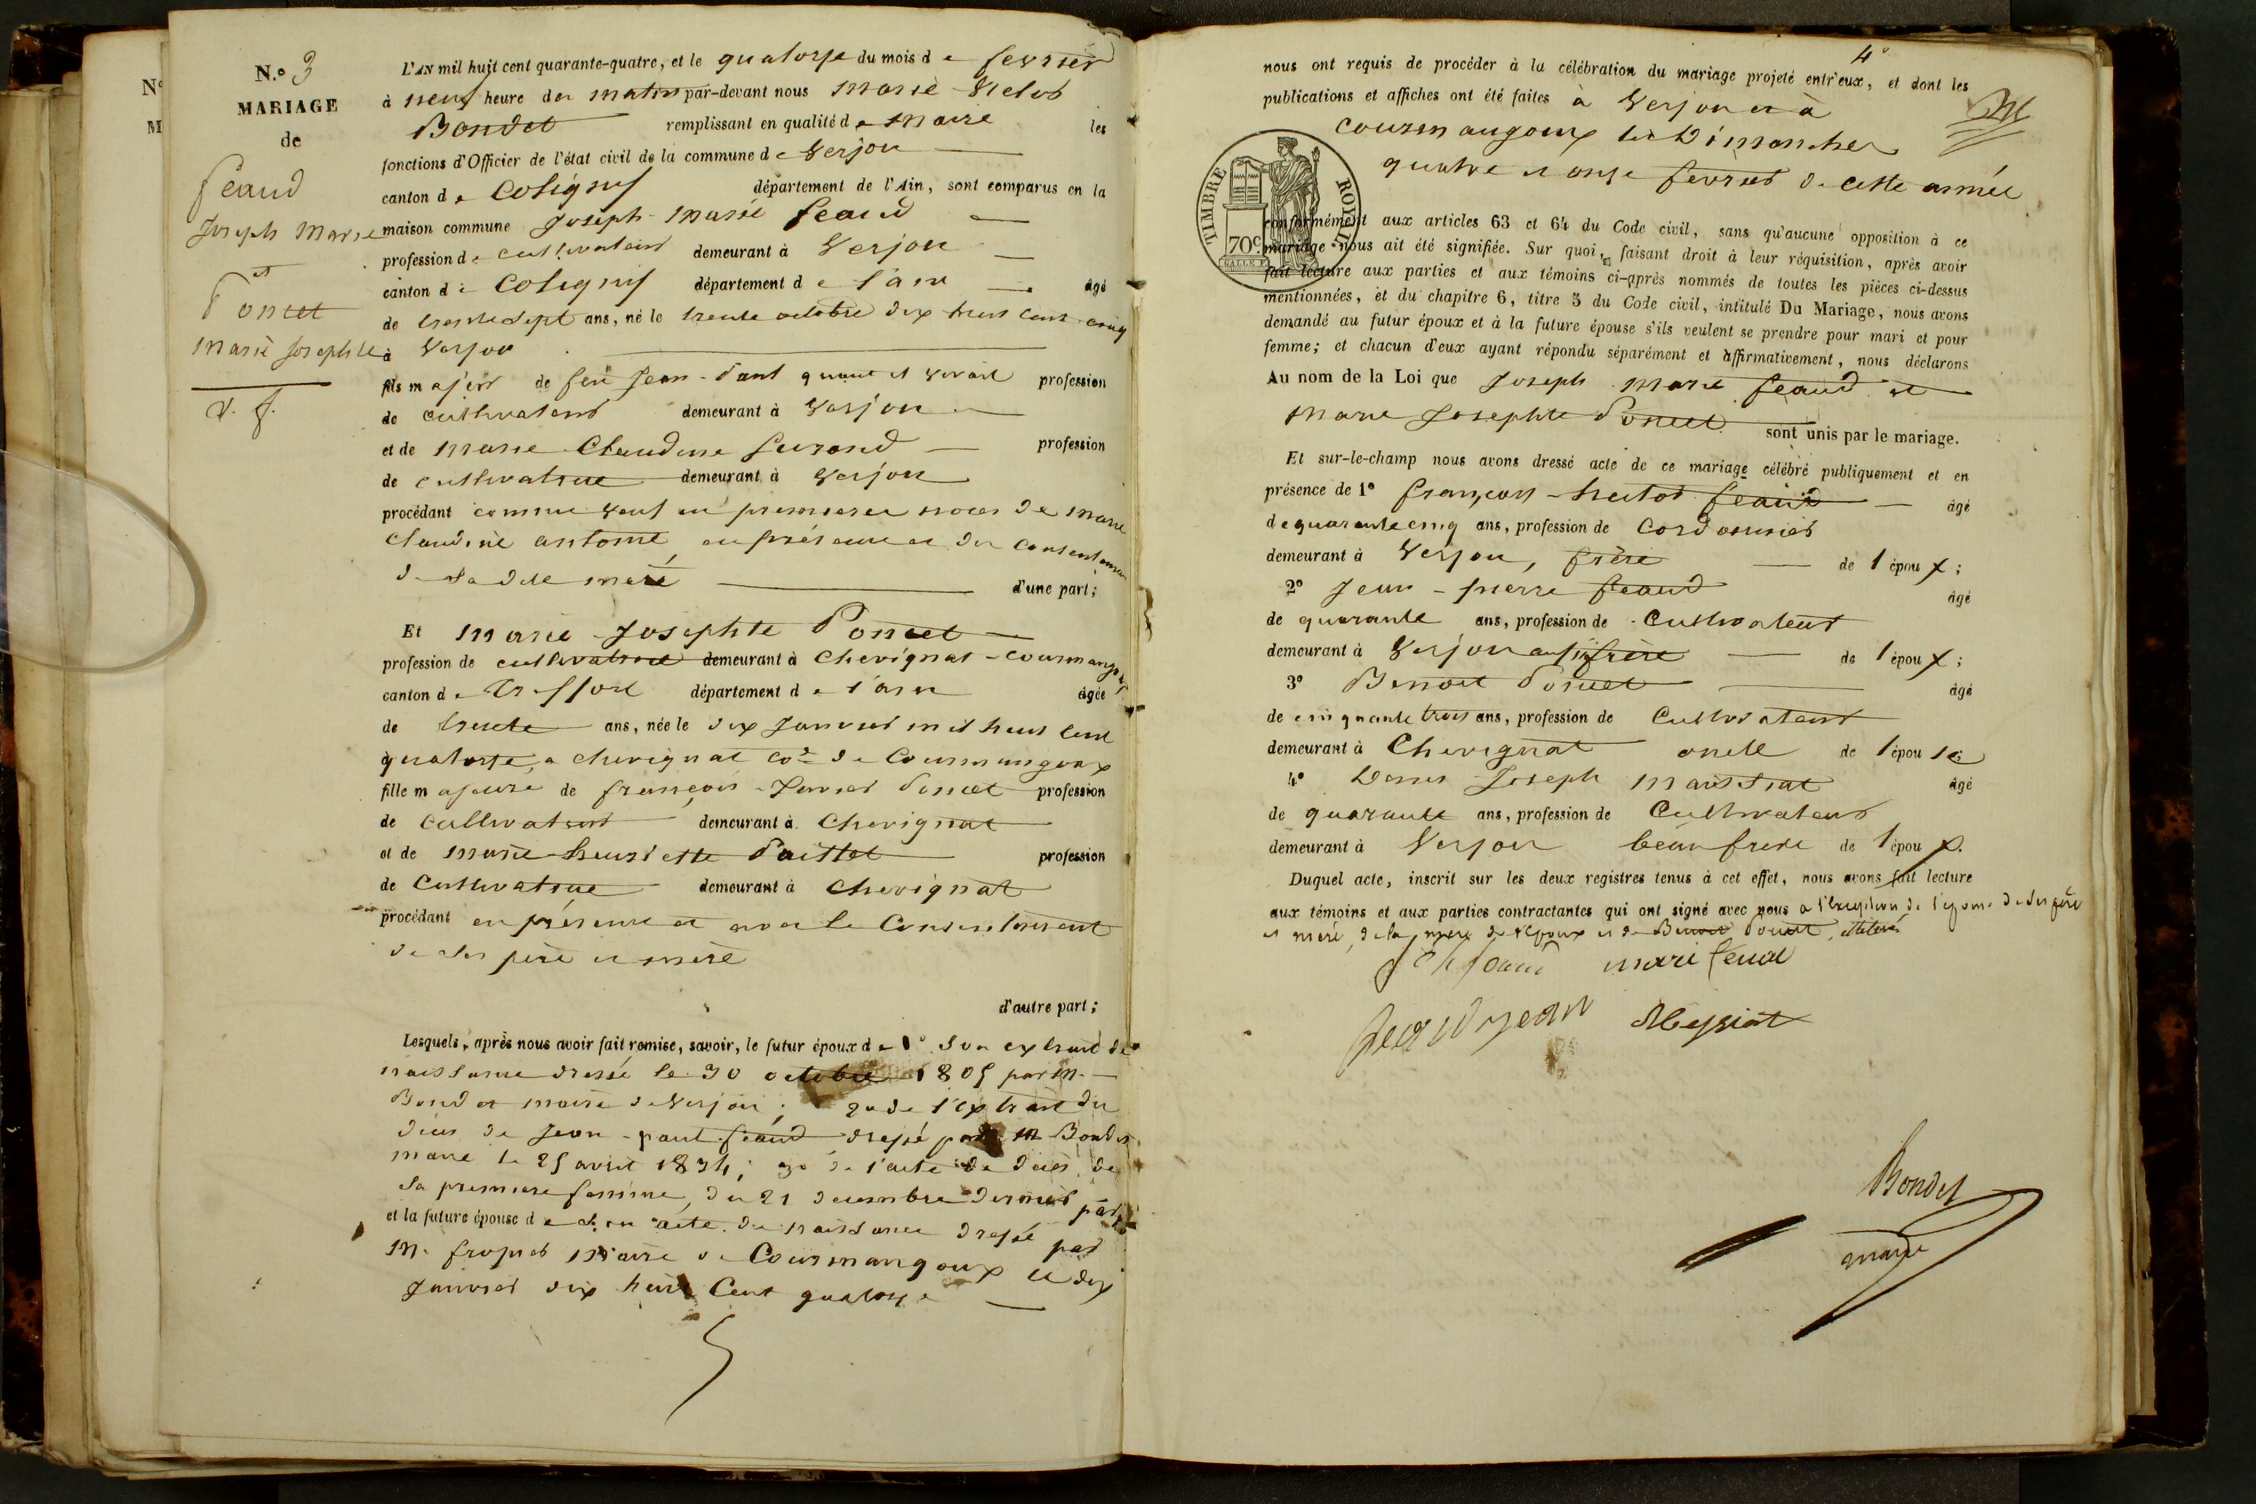 N.o 3
MARIAGE
de
féaud
Joseph Marie
et
Poncet
Marie Josephte
v. f.
L'AN mil huit cent quarante-quatre, et le quatorze du mois de fevrier
à neuf heure du matin par-devant nous Marie-Victor
Bondet remplissant en qualité de Maire les
fonctions d'Officier de l'état civil de la commune de Verjon
canton de Coligny département de l'Ain, sont comparus en la
maison commune Joseph-Marie feaud
profession de cultivateur demeurant à Verjon
canton de Coligny département de l'ain âgé
de trente sept ans, né le trente octobre dix huit cent cinq
à Verjon
fils majeur de feu Jean-Paul quand il vivait profession
de cultivateur demeurant à Verjon
et de Marie Claudine profession
de cultivatrice demeurant à Verjon
procédant comme veuf en premieres noces de Marie
Claudine antoine, en présence et du consentement
de sa dite mere d'une part;
Et Marie Josephte Poncet
profession de cultivatrice demeurant à Chevignat-Courmangoux
canton de Treffort département de l'ain âgée
de trente ans, née le dix Janvier mil huit cent
quatorze, a chevignat Cne de Courmangoux
fille majeure de françois-Xavier Poncet profession
de cultivateur demeurant à Chevignat
et de Marie henriette profession
de Cultivatrice demeurant à Chevignat
procédant en présence et avec le Consentement
de ses père et mère
d'autre part;
Lesquels, après nous avoir fait remise, savoir, le futur époux de 1° son extrait de
naissance dressé le 30 octobre 1805 par M.
Bondet maire de Verjon; 2° de l'extrait du
décès de Jean-paul féaud dressé par M Bondet
maire le 25 avril 1834; 3° de l'acte de décès de
sa premiere femme, du 21 decembre dernier
et la future épouse de son acte de naissance dressé par
M. maire de Courmangoux le dix
Janvier dix huit Cent quatorze
4e
nous ont requis de procéder à la célébration du mariage projeté entr'eux, et dont les
publications et affiches ont été faites à Verjon et à
courmangoux les Dimanches
quatre et onze fevrier de cette année
TIMBRE ROYAL
70c
conformément aux articles 63 et 64 du Code civil, sans qu'aucune opposition à ce
mariage nous ait été signifiée. Sur quoi, faisant droit à leur réquisition, après avoir
fait lecture aux parties et aux témoins ci-après nommés de toutes les pièces ci-dessus
mentionnées, et du chapitre 6, titre 5 du Code civil, intitulé Du Mariage, nous avons
demandé au futur époux et à la future épouse s'ils veulent se prendre pour mari et pour
femme; et chacun d'eux ayant répondu séparément et affirmativement, nous déclarons
Au nom de la Loi que Joseph Marie feaud et
Marie Josephte Poncet sont unis par le mariage.
Et sur-le-champ nous avons dressé acte de ce mariage célébré publiquement et en
présence de 1° françois-hector feaud âgé
de quarante cinq ans, profession de Cordonnier
demeurant à Verjon, frère de l époux;
2° Jean-pierre feaud âgé
de quarante ans, profession de Cultivateur
demeurant à Verjon aussi frère de l époux;
3° Benoit Poncet âgé
de cinquante trois ans, profession de Cultivateur
demeurant à Chevignat oncle de l épouse
4° Denis Joseph âgé
de quarante ans, profession de Cultivateur
demeurant à Verjon beau frere de l époux.
Duquel acte, inscrit sur les deux registres tenus à cet effet, nous avons fait lecture
aux témoins et aux parties contractantes qui ont signé avec nous a l'exception de l'epouse de ses père
et mere, de la mere de l'epoux et de Benoit Poncet, illiterés
feaud jean
Bondet
maire